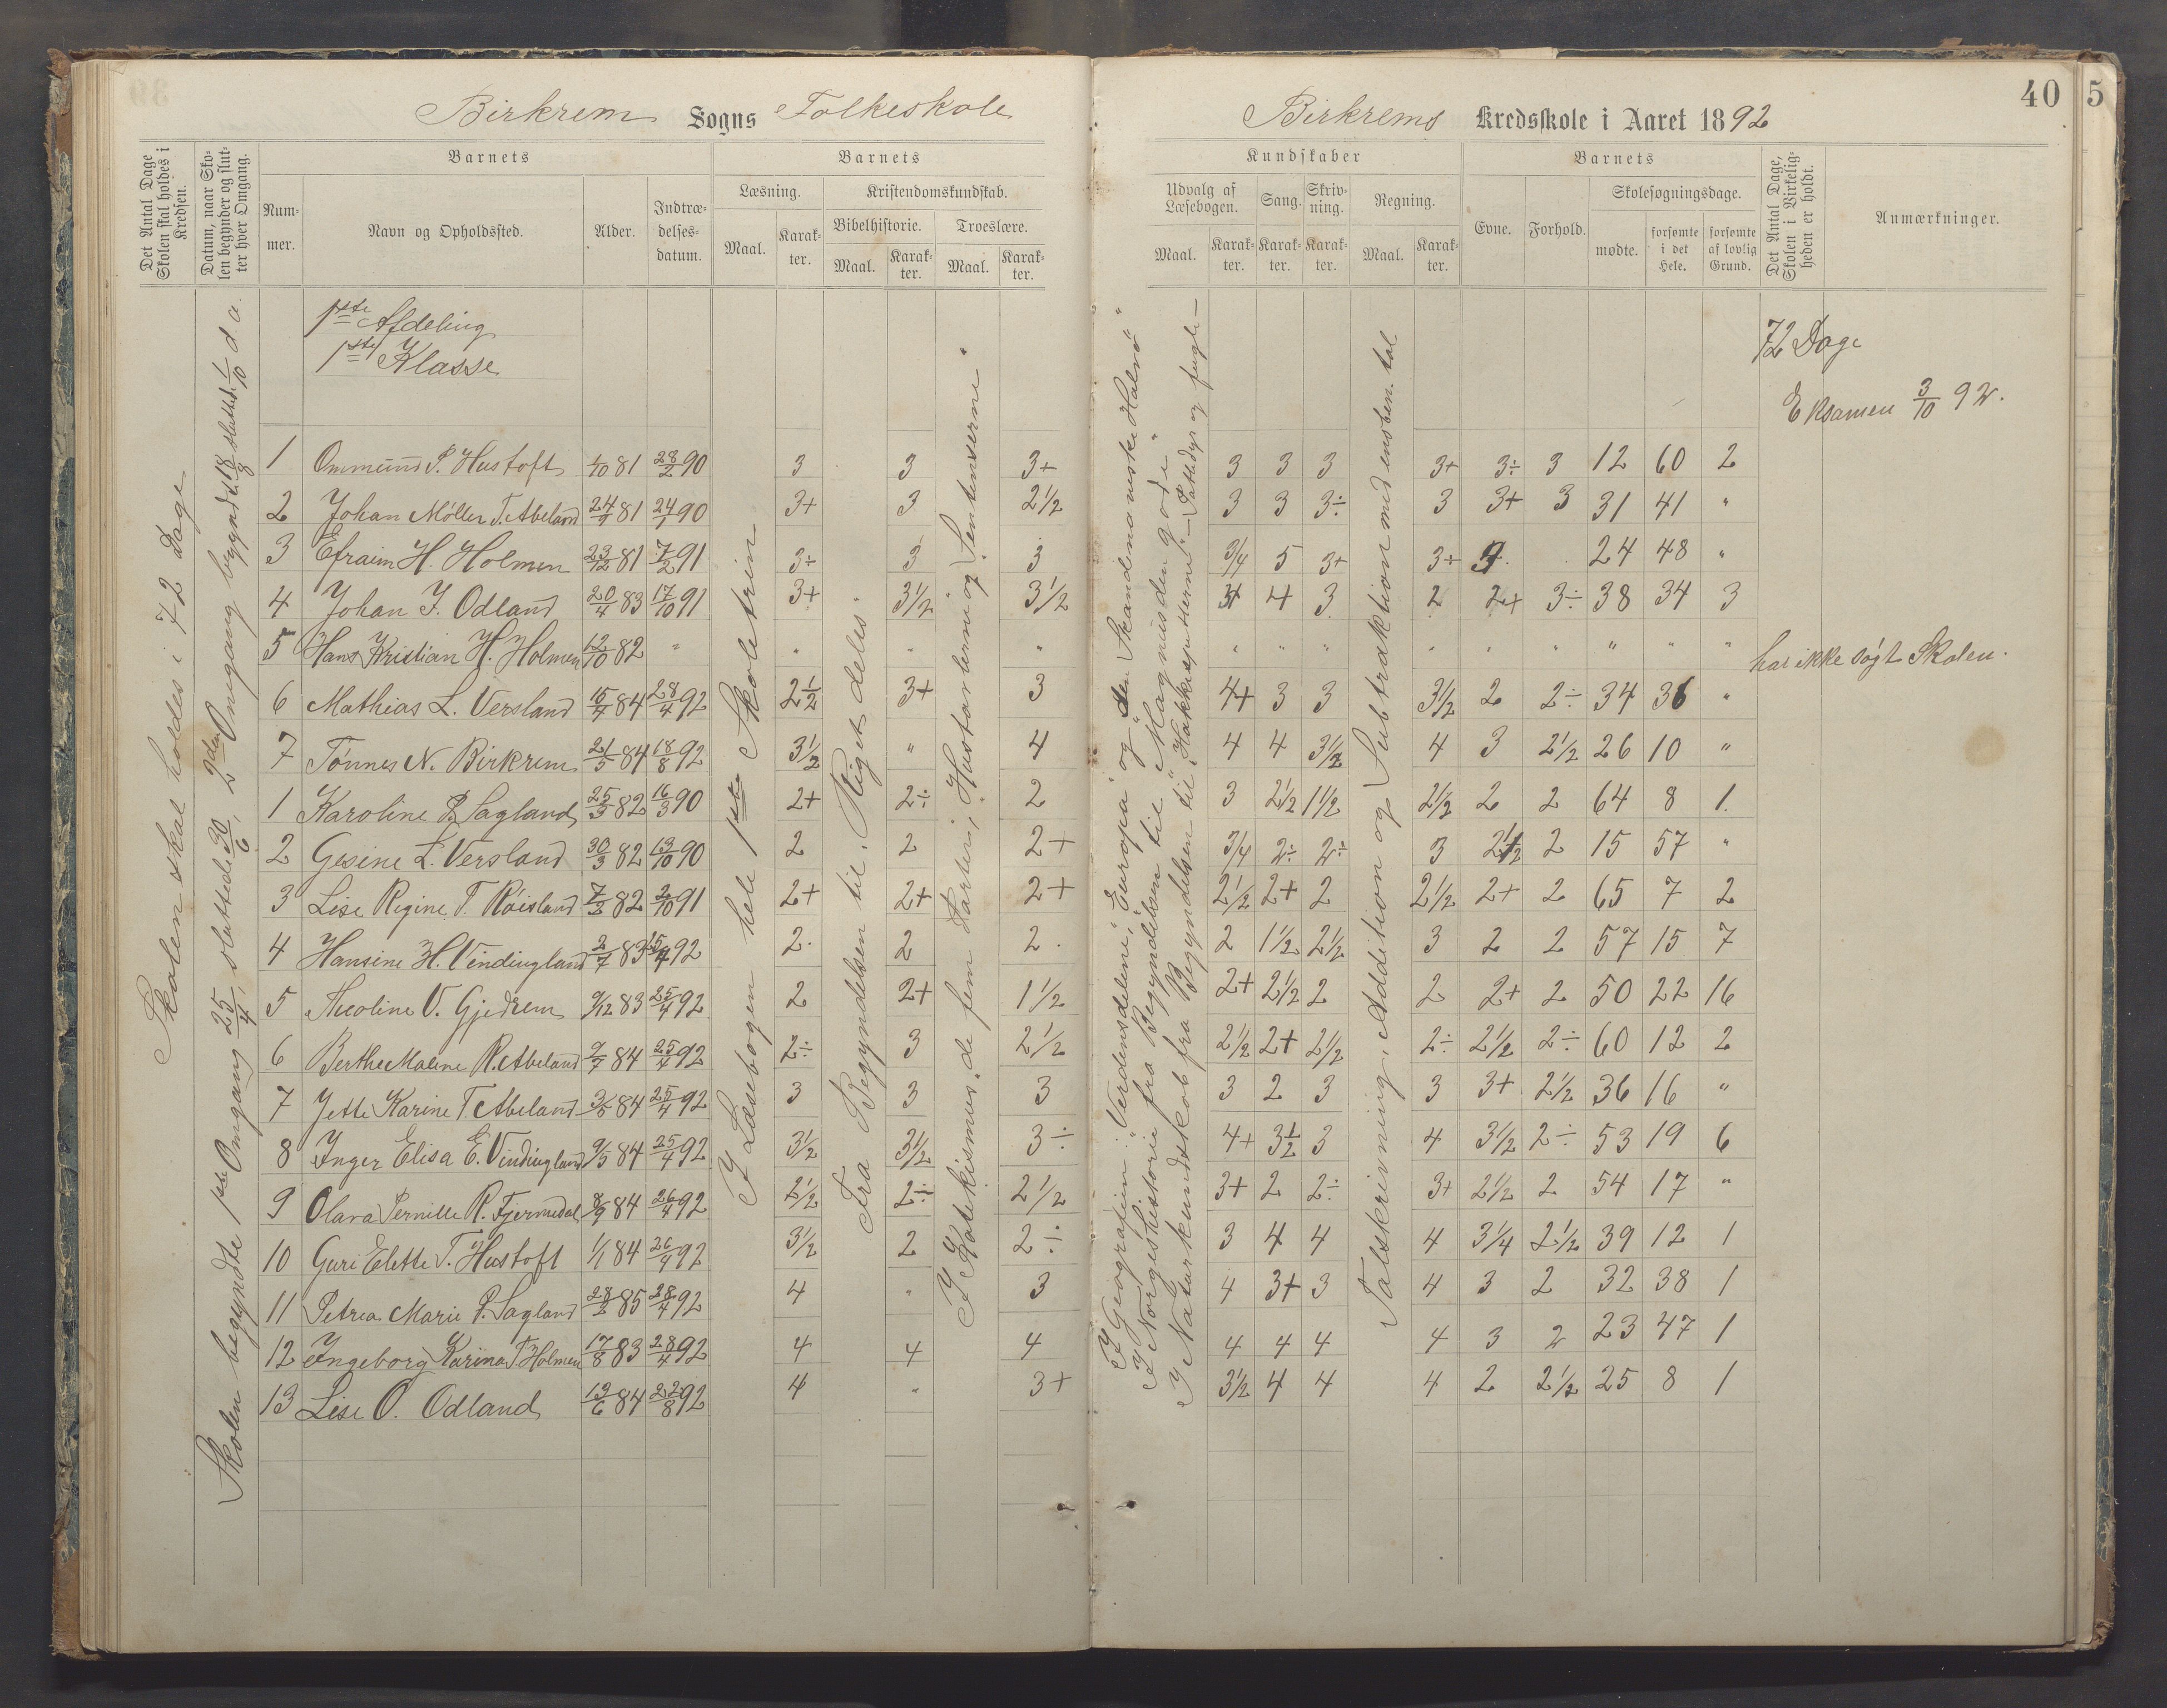 Birkrem Sogns Folkeskole
Det Antal Dage Skolen skal holdes i Kredsen.
Datum, naar Skolen begynder og slutter hver Omgang.
Barnets
Nummer.
Navn og Opholdssted.
Alder.
Indtrædelsesdatum.
Barnets
Læsning.
Maal.
Karakter.
Kristendomskundskab.
Bibelhistorie.
Maal.
Karakter.
Troeslære.
Maal.
Karakter.
Skolen skal holdes i 72 Dage
Skolen begyndte 1ste Omgang 25/4, sluttede 30/6, 2den Omgang begyndt 18/8 sluttede 1/10 d. a.
1ste Afdeling
1ste Klasse
I Læsebogen hele 1ste Skoletrin
Fra Begyndelsen til "Riget deles".
I Katekismus: de fem Parter, "Hustavlerne" og "Sentenserne"
1 Ommund P. Hustoft 1/10 81 28/2 90 3 3 3+
2 Johan Møller T. Abeland 24/9 81 24/1 90 3+ 3 2 1/2
3 Efraim H. Holmen 23/12 81 7/2 91 3÷ 3 3
4 Johan J. Odland 20/4 83 17/10 91 3+ 3 1/2 3 1/2
5 Hans Kristian H. Holmen 12/10 82 " " " "
6 Mathias L. Versland 15/7 84 28/4 92 2 1/2 3+ 3
7 Tønnes N. Birkrem 21/5 84 18/8 92 3 1/2 " 4
1 Karoline P. Sagland 25/3 82 16/3 90 2+ 2÷ 2
2 Gesine L. Versland 30/3 82 13/10 90 2 2 2+
3 Lise Regine T. Røisland 7/3 82 2/10 91 2+ 2+ 2+
4 Hansine H. Vindingland 2/7 83 25/4 92 2 2 2
5 Nicoline V. Gjedrem 9/12 83 25/4 92 2 2+ 1 1/2
6 Berthe Maline R. Abeland 9/7 84 25/4 92 2÷ 3 2 1/2
7 Jette Karine T. Abeland 3/5 84 25/4 92 3 3 3
8 Inger Elisa E. Vindingland 9/5 84 25/4 92 3 1/2 3 1/2 3÷
9 Olava Pernille R. Fjermedal 8/9 84 26/4 92 2 1/2 2÷ 2 1/2
10 Guri Elette T. Hustoft 1/1 84 26/4 92 3 1/2 2 2÷
11 Petrea Marie P. Sagland 28/2 85 28/4 92 4 " 3
12 Ingeborg Karina T. Holmen 17/8 83 28/4 92 4 4 4
13 Lise O. Odland 13/6 84 22/8 92 4 " 3+
40
5
Birkrems Kredsskole i Aaret 1892
Kundskaber
Udvalg af Læsebogen.
Maal.
Karakter.
Sang.
Karakter.
Skrivning.
Karakter.
Regning.
Maal.
Karakter.
Barnets
Evne.
Forhold.
Skolesøgningsdage.
mødte.
forsømte i det Hele.
forsømte af lovlig Grund.
Det Antal Dage, Skolen i Virkeligheden er holdt.
Anmærkninger.
I Geografien: "Verdensdelene", "Europa" og "den Skandinaviske Halvø"
I Norgeshistorie fra Begyndelsen til "Magnus den gode".
I Naturkundskab fra Begyndelsen til "Hakkespetterne" – Pattedyr og fugle –
Talskrivning, Addition og Subtraktion med ensben. tal
72 Dage
Eksamen 3/10 92.
3 3 3 3+ 3÷ 3 12 60 2
3 3 3÷ 3 3+ 3 31 41 "
3/4 5 3+ 3÷ 24 48 "
3+ 4 3 2 2+ 3÷ 38 34 3
" " " " " " " " " har ikke søgt Skolen.
4+ 3 3 3 1/2 2 2÷ 34 36 "
4 4 3 1/2 4 3 2 1/2 26 10 "
3 2 1/2 1 1/2 2 1/2 2 2 64 8 1
3/4 2÷ 2÷ 3 2 1/2 2 15 57 "
2 1/2 2+ 2 2 1/2 2+ 2 65 7 2
2 1 1/2 2 1/2 3 2 2 57 15 7
2+ 2 1/2 2 2 2+ 2 50 22 16
2 1/2 2+ 2 1/2 2÷ 2 1/2 2÷ 60 12 2
3 2 3 3 3+ 2 1/2 36 16 "
4+ 3 1/2 3 4 3 1/2 2÷ 53 19 6
3+ 2 2÷ 3+ 2 1/2 2 54 17 "
3 4 4 4 3 1/4 2 1/2 39 12 1
4 3+ 3 4 3 2 32 38 1
4 4 4 4 3 2 23 47 1
3 1/2 4 4 4 2 2 1/2 25 8 1